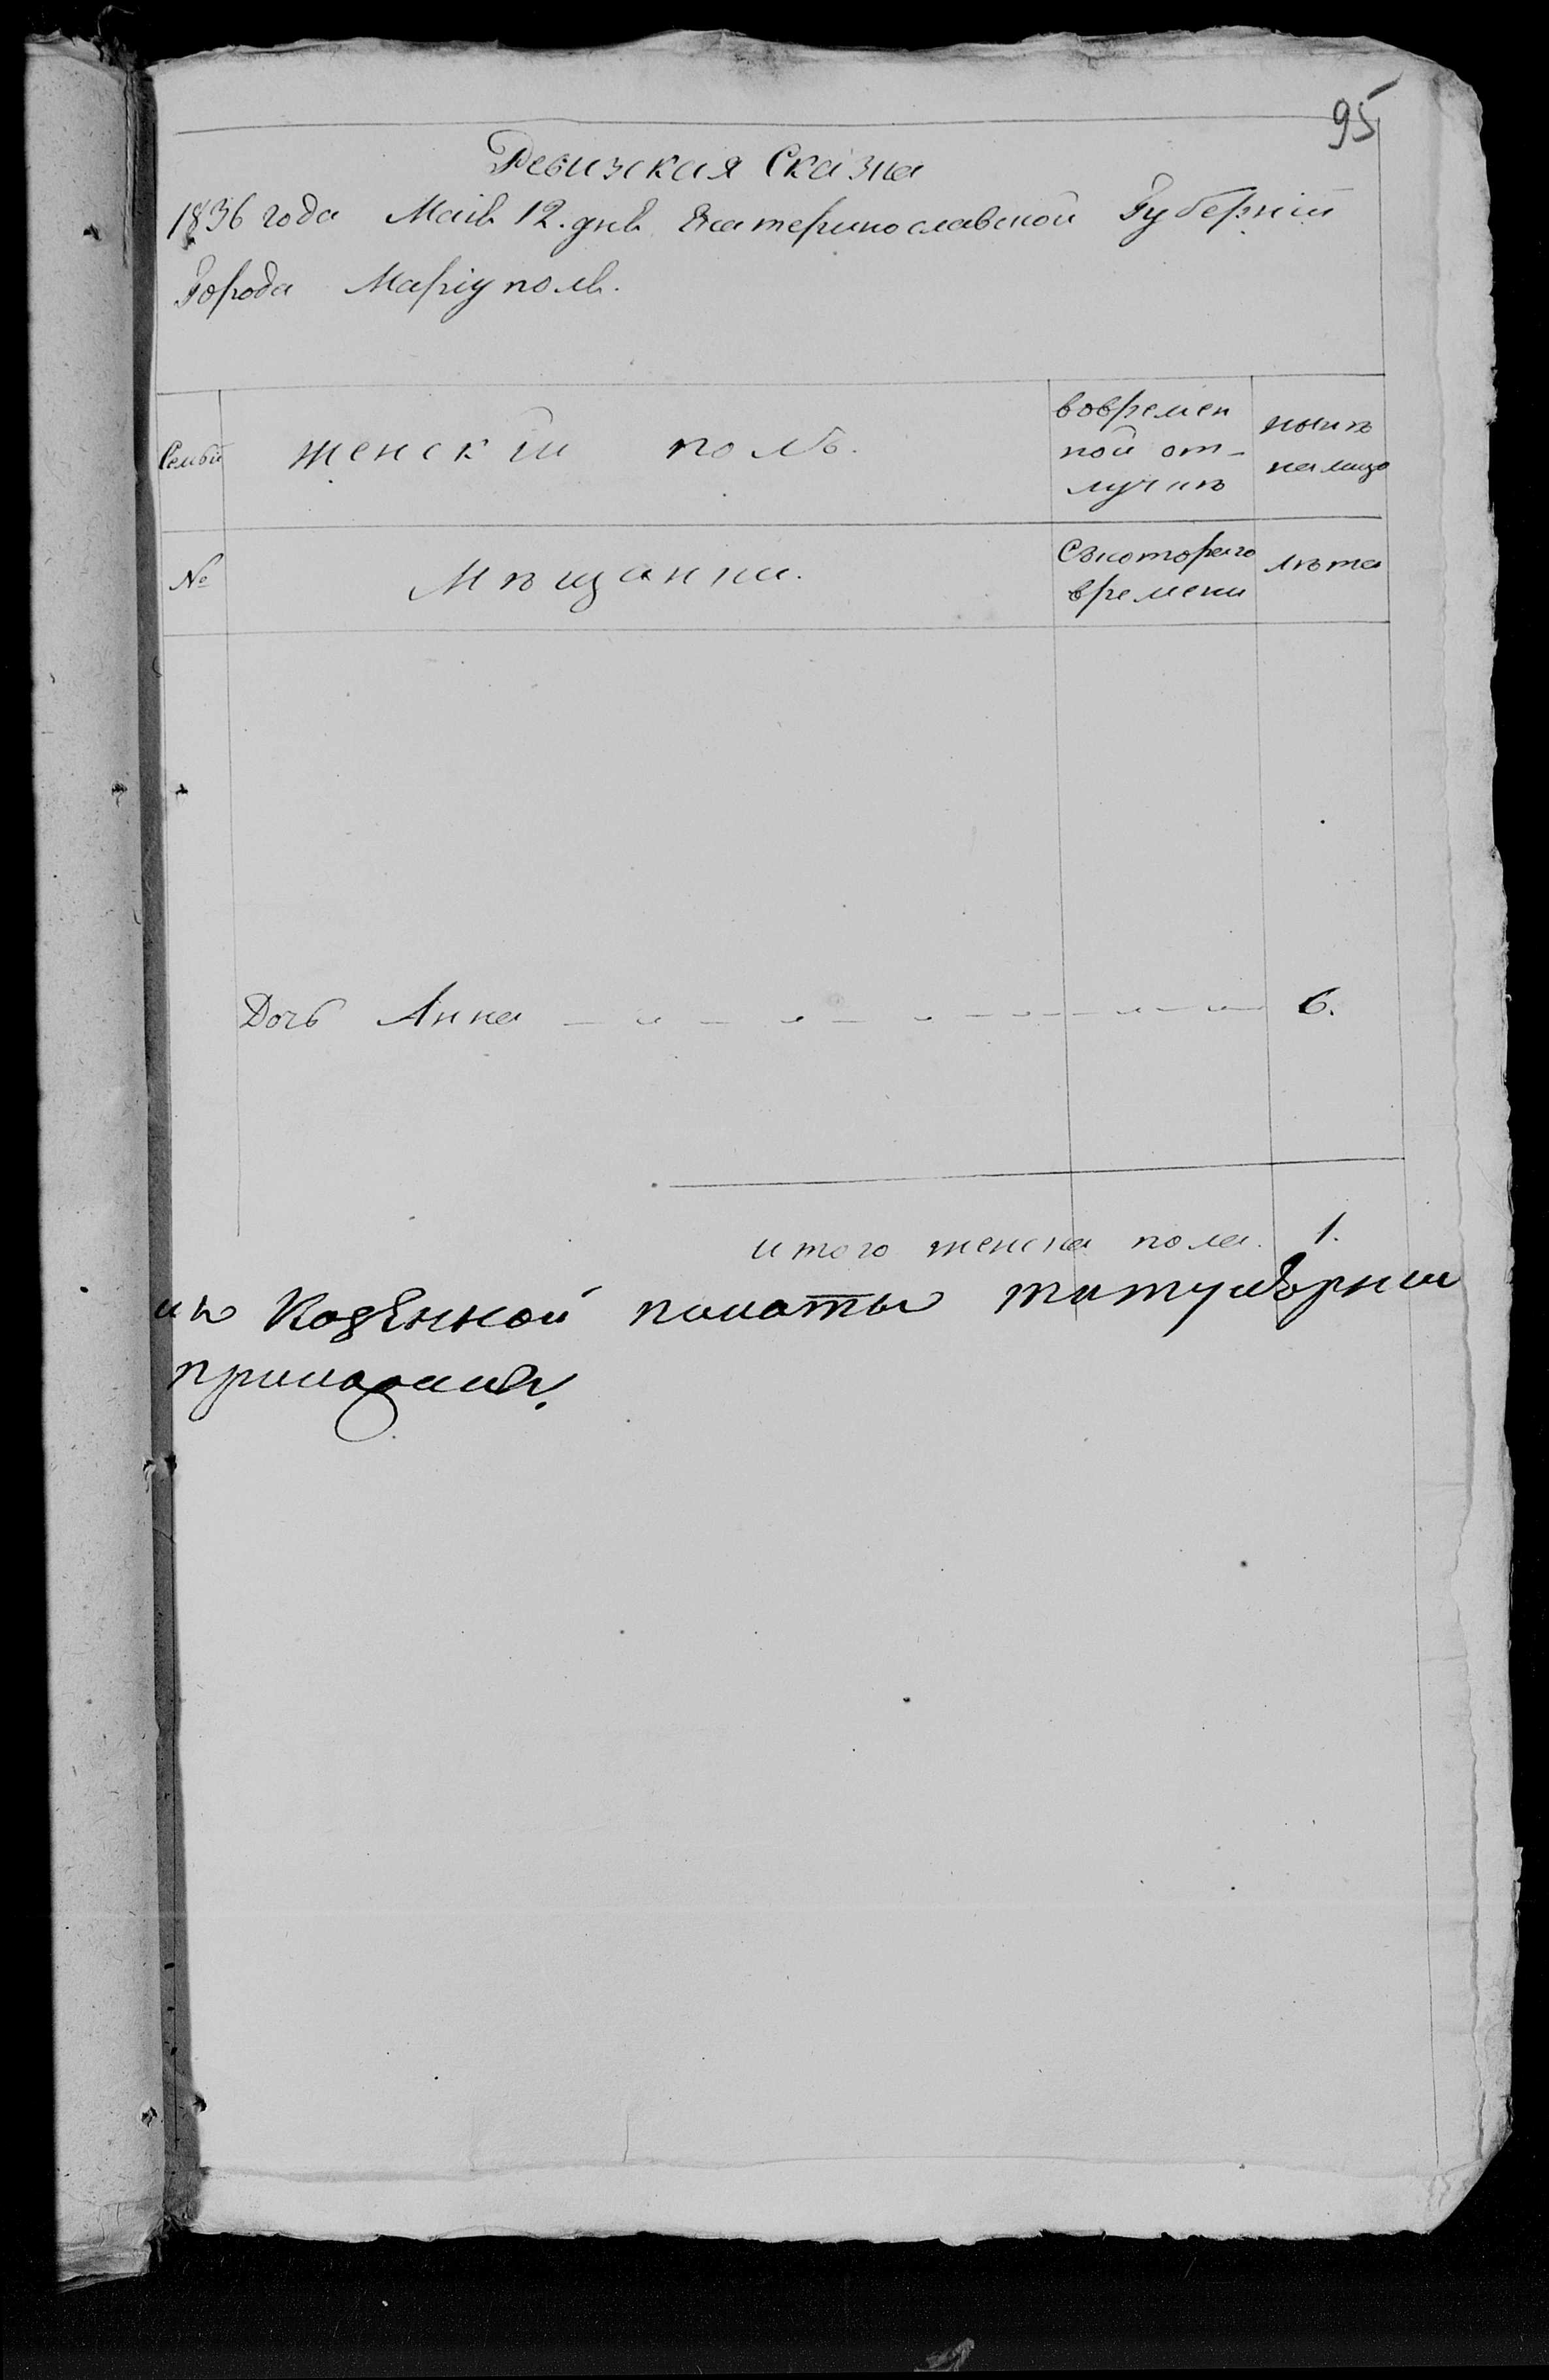 95
Ревизская Сказка
1836 года Маія 12. дня Екатеринославской Губерніи
Города Маріуполя.
Семьи
женскій полъ.
вовремен
ной от-
лучкѣ
нынѣ
налицо
№
Мѣщанки.
Скотораго
времени
лѣта
Дочь Анна 6.
итого женска пола. 1.
Казенной палаты титулярни
приложилъ.